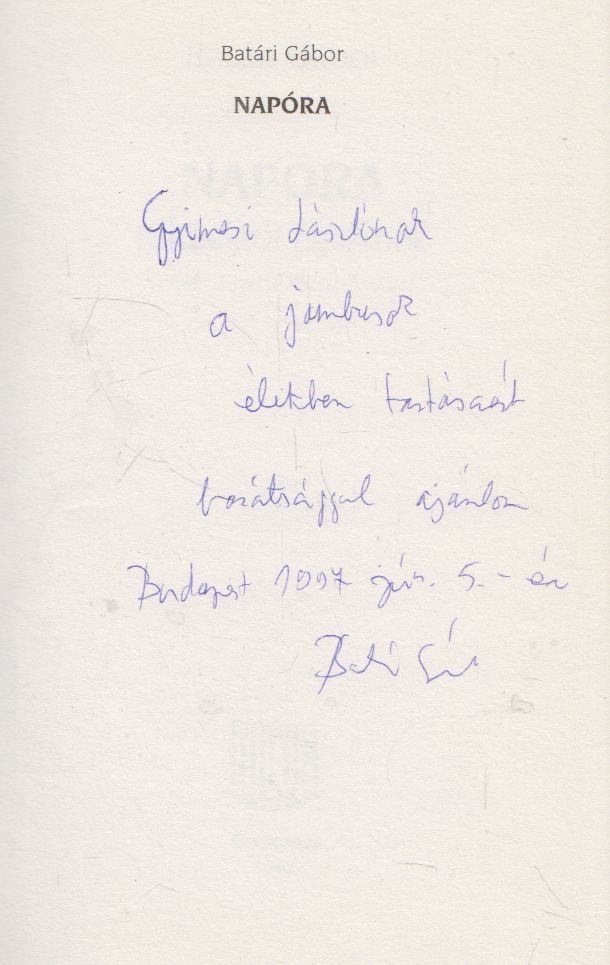 Batári Gábor
NAPÓRA
Gyimesi Lászlónak
a jambusok
életben tartásáért
barátsággal ajánlom
Budapest 1997 jún. 5.-én
Batári Gábor